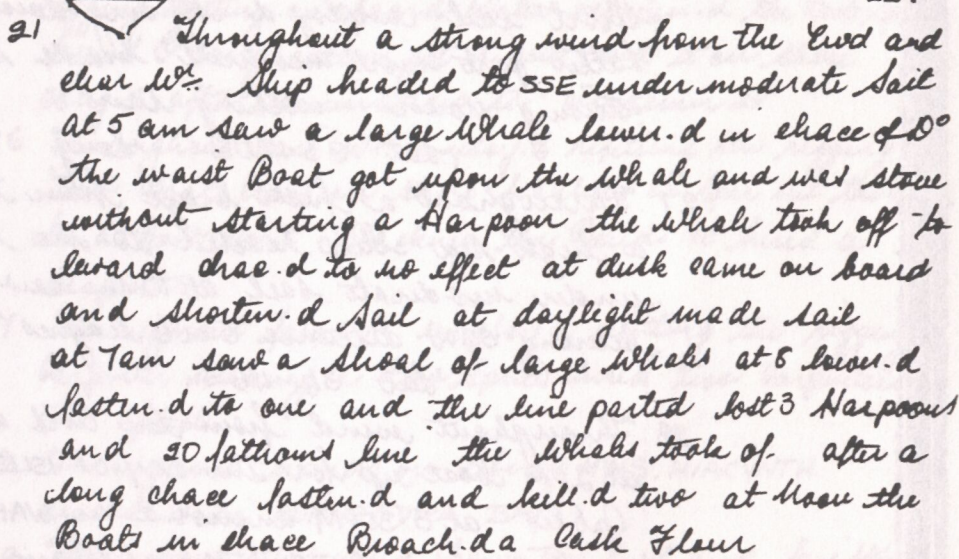 21. Throughout a strong wind from the Ewd and
clear Wr. Ship headed to SSE under moderate Sail
at 5 am saw a large Whale lower.d in chace of Do
the waist Boat got upon the whale and was stove
without starting a Harpoon the whale took off to
leward chac.d to no effect at dusk came on board
and shorten.d Sail at daylight made sail
at 7am saw a shoal of large whales at 8 lower.d
fasten.d to one and the line parted lost 3 Harpoons
and 20 fathoms line the whales took of after a
long chace fasten.d and kill.d two at Noon the
Boats in chace Broach.d a Cask Flour